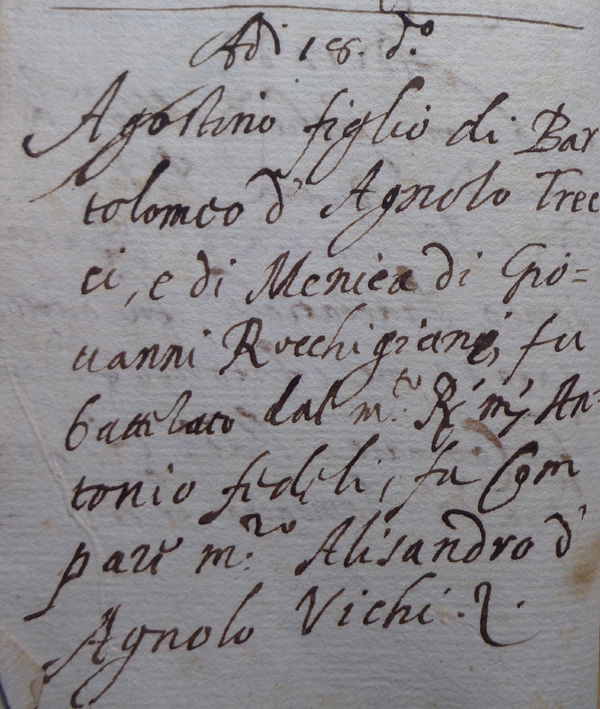 Adi 18. d.º
Agostino figlio di Bar
tolomeo d' Agnolo Trec
ci, e di Menica di Gio=
uanni Rocchigiani, fu
battezato dal m.to R. An=
tonio fedeli, fu Com
pare m.ro Alisandro d'
Agnolo Vichi.